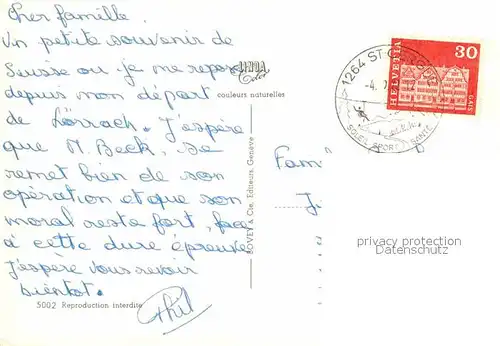 Cher famille.
Un petite souvenir de
Suisse ou je me repose
depuis mon départ
de Lörrach. J'espère
que M. Beck, se
remet bien de son
opération et que son
moral reste fort, face
à cette dure épreuve
J'espère vous revoir
bientot.
Phil
5002 Reproduction interdite
LINDA
Color
couleurs naturelles
BOVEY & Cie, Editeurs, Genève
1264 ST-
-4.
SOLEIL SPORT SANTÉ
HELVETIA
30
Fam
J
privacy protection
Datenschutz